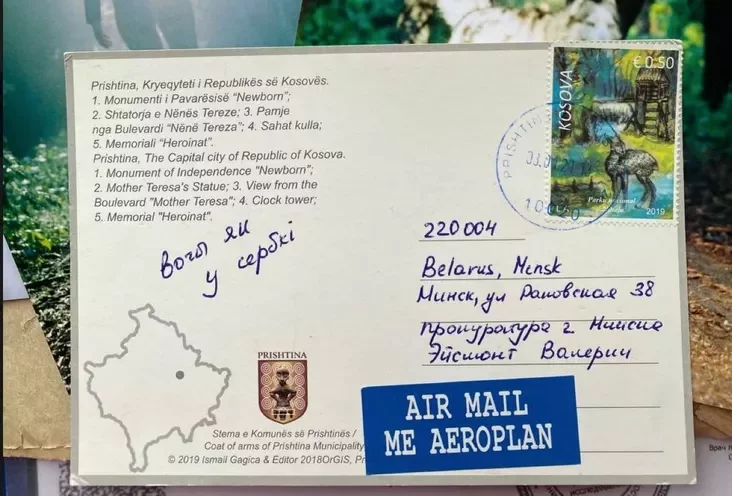 Prishtina, Kryeqyteti i Republikës së Kosovës.
1. Monumenti i Pavarësisë "Newborn";
2. Shtatorja e Nënës Tereze; 3. Pamje
nga Bulevardi "Nënë Tereza"; 4. Sahat kulla;
5. Memoriali "Heroinat".
Prishtina, The Capital city of Republic of Kosova.
1. Monument of Independence "Newborn";
2. Mother Teresa's Statue; 3. View from the
Boulevard "Mother Teresa"; 4. Clock tower;
5. Memorial "Heroinat".
вочы як
у сербкі
PRISHTINA
Stema e Komunës së Prishtinës /
Coat of arms of Prishtina Municipality
© 2019 Ismail Gagica & Editor 2018OrGIS,
KOSOVA
€ 0.50
2019
PRISHTIN
220004
Belarus, Minsk
Минск, ул Раковская 38
прокуратура г Минска
Эйсмонт Валерии
AIR MAIL
ME AEROPLAN